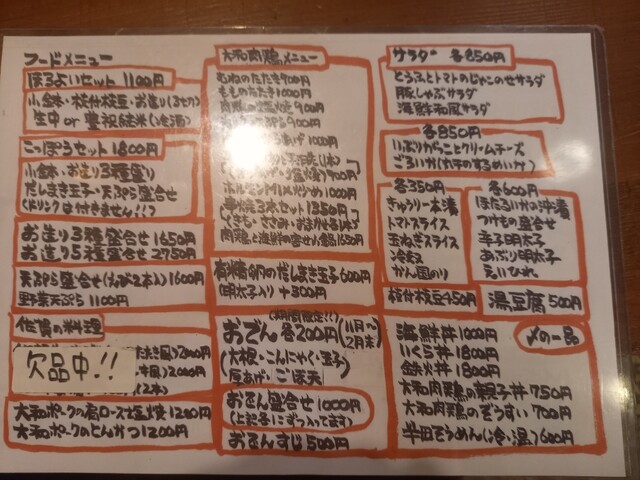 フードメニュー
ほろよいセット 1100円
小鉢・枝付枝豆・お造り(3セつ)
生中 or 豊祝純米(冷酒)
こっぽうセット 1800円
小鉢・お造り3種盛り
だしまき玉子・天ぷら盛合せ
(ドリンクは付きません!!)
お造り3種盛合せ 1650円
お造り5種盛合せ 2750円
天ぷら盛合せ(えび2本入)1600円
野菜天ぷら 1100円
佐賀の料理
欠品中!!
たたき風)2000円
風)2000円
大和ポークの肩ロース塩焼 1200円
大和ポークのとんかつ 1200円
大和肉鶏メニュー
むねのたたき900円
もものたたき1000円
塩焼 900円
900円
あげ 1000円
900円
ホルモンMIX炒め 1000円
串焼3本セット 1350円
肉鶏と海鮮の寄せ鍋 1650円
有精卵のだしまき玉子 600円
(明太子入り +300円)
(期間限定!!)
おでん 各200円 (11月〜2月末)
(大根・こんにゃく・玉子)
厚あげ・ごぼ天
おでん盛合せ 1000円
(上記各1こずつ入ってます)
おでんすじ 500円
サラダ 各850円
とうふとトマトのじゃこのせサラダ
豚しゃぶサラダ
海鮮和風サラダ
各850円
いぶりがっことクリームチーズ
各350円
きゅうり一本漬
トマトスライス
玉ねぎスライス
冷奴
かん国のり
各600円
ほたるいかの沖漬
つけもの盛合せ
辛子明太子
あぶり明太子
えいひれ
枝付枝豆 450円
湯豆腐 500円
〆の一品
海鮮丼 1000円
いくら丼 1800円
鉄火丼 1800円
大和肉鶏の親子丼 750円
大和肉鶏のぞうすい 700円
半田そうめん(冷・温)600円